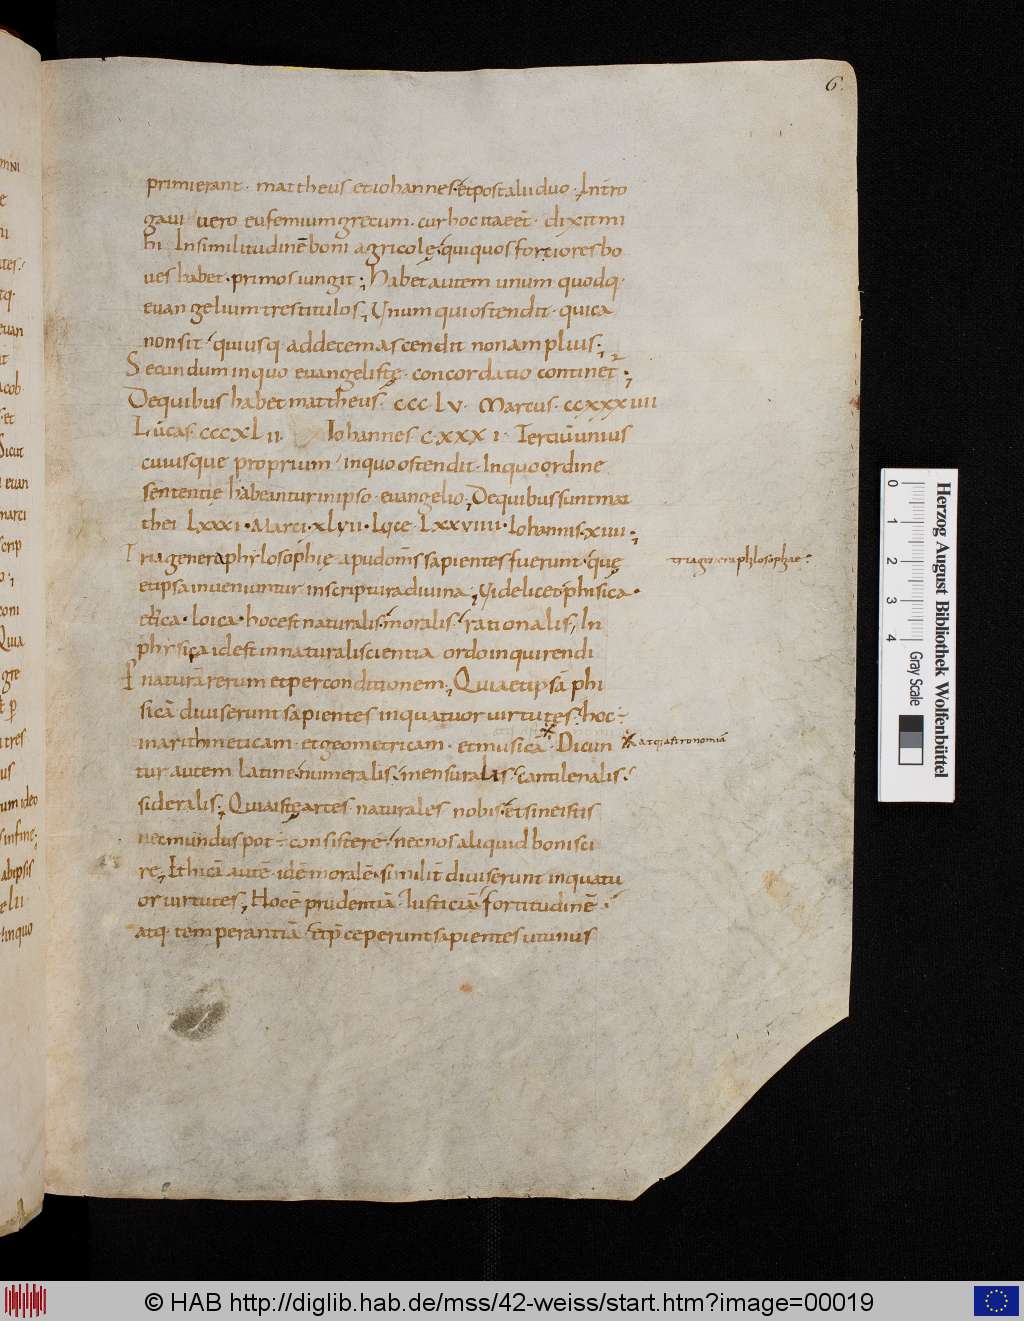 6.
primierant · mattheus et iohannes · et postalui duo · Intro
gaui uero eufemium grecum · cur hoc ita eēt · dixit mi
hi · In similitudinē boni agricolę · qui quos fortiores bo
ues habet · primos iungit ; Habet autem unum quodq·
euangelium tres titulos ; Unum qui ostendit · quica
non sit · quiusq· ad decem ascendit non amplius ;
Secundum in quo euangelistę · concordatio continet ;
De quibus habet mattheus · ccc lv · Marcus · ccxxxiiii
Lucas · cccxl ii · Iohannes c·xxx i · Tertiū unius
cuiusque proprium · in quo ostendit · In quo ordine
sententię habeantur in ipso · euangelio ; De quibus sunt mat
thei lxxxi · Marci · xlvii · Lucę · Lxxviiii · Iohannis · xiiii ;
Tria genera phylosophię apud om̄s sapientes fuerunt · quę
et ipsa inueniuntur in scriptura diuina ; Videlicet · phisica ·
et̄ica · loica · hoc est naturalis · moralis · rationalis ; In
physica id est in naturali scientia ordo inquirendi
naturā rerum et per conditionem ; Quia et ipsā phi
sicā diuiserunt sapientes in quatuor uirtutes · hoc ÷
in arithmeticam · et geometricam · et musicā · Dicun
tur autem latine · numeralis · mensuralis · cantilenalis ·
sideralis ; Quia istę artes naturales nobis · et sine istis
nec mundus pot÷ consistere · nec nos aliquid boni sci
re ; Ethicā autē · idē moralē · similit̄ diuiserunt in quatu
or uirtutes ; Hoc ē prudentiā · Iusticiā · fortitudinē ·
atq· temperantiā · et p̄ceperunt sapientes ut unus
tria genera phlosophae :
atq; astronomiā
0 1 2 3 4
Herzog August Bibliothek Wolfenbüttel
Gray Scale
© HAB http://diglib.hab.de/mss/42-weiss/start.htm?image=00019